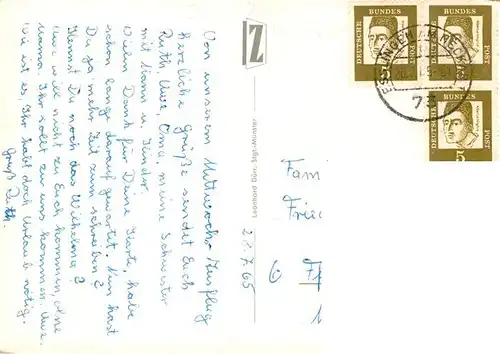 Von unserem Mittwochs Ausflug
herzliche Grüße sendet Euch
Ruth, Uwe, Oma, meine Schwester
mit Mann u. Kinder.
Vielen Dank für Deine Karte, habe
schon lang darauf gewartet. Nun hast
Du ja mehr Zeit zum schreiben?
Kennst Du noch das Wilhelma?
Uwe will nicht zu Euch kommen, ohne
Mama. Ihr sollt zu uns kommen. Uwe.
Wie ist es Ihr habt doch Urlaub nötig.
Gruß Ruth.
Z
28.7.65
Fam
DEUTSCHE BUNDES POST
5
DEUTSCHE BUNDES POST
5
DEUTSCHE BUNDES POST
5
ESSLINGEN (NECKAR)
73